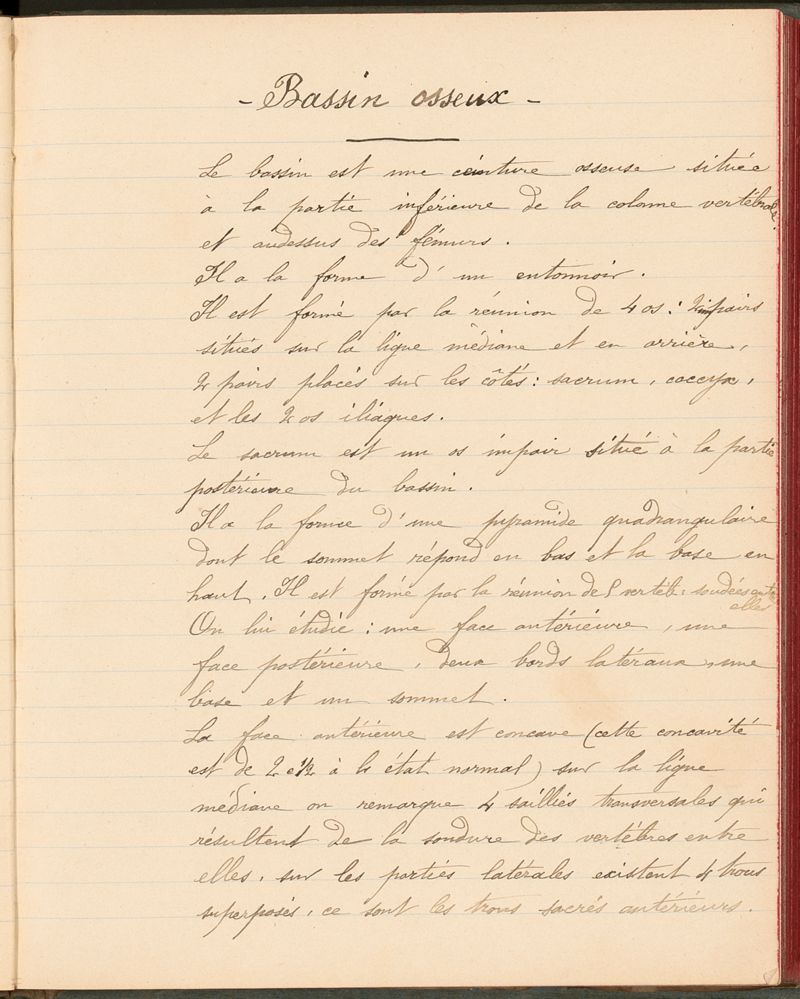 - Bassin osseux -
Le bassin est une ceinture osseuse située
à la partie inférieure de la colonne vertébrale.
et audessus des fémurs.
Il a la forme d'un entonnoir.
Il est formé par la réunion de 4 os: 2 impairs
situés sur la ligne médiane et en arrière,
2 pairs placés sur les côtés: sacrum, coccyx,
et les 2 os iliaques.
Le sacrum est un os impair situé à la partie
postérieure du bassin.
Il a la forme d'une pyramide quadrangulaire
dont le sommet répond en bas et la base en
haut. Il est formé par la réunion de 5 vertèb: soudées entre
elles
On lui étudie: une face antérieure, une
face postérieure, deux bords latéraux, une
base et un sommet.
La face antérieure est concave (cette concavité
est de 2 c 1/2 à l'état normal) sur la ligne
médiane on remarque 4 saillies transversales qui
résultent de la soudure des vertèbres entre
elles, sur les parties latérales existent 4 trous
superposés, ce sont les trous sacrés antérieurs.